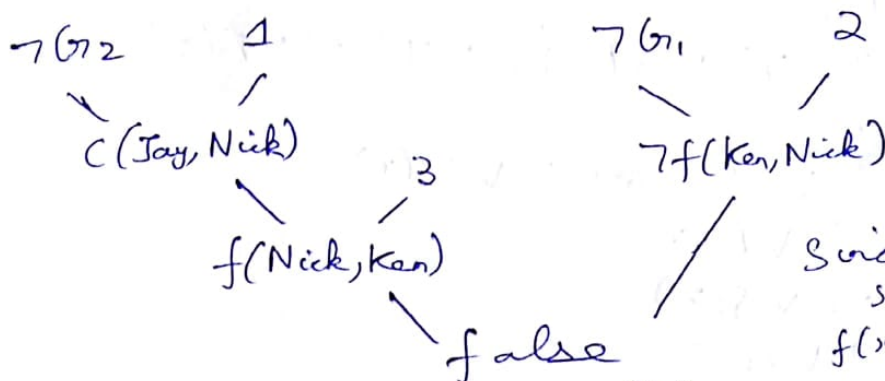 ¬G₂ 1 ¬G₁ 2
C(Jay, Nick) 3 ¬f(Ken, Nick)
f(Nick, Ken)
s
false f(